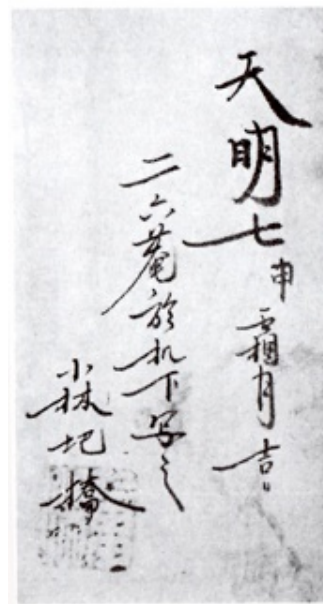 天明七申霜月吉日
二六菴於机下写之
小林圯橋